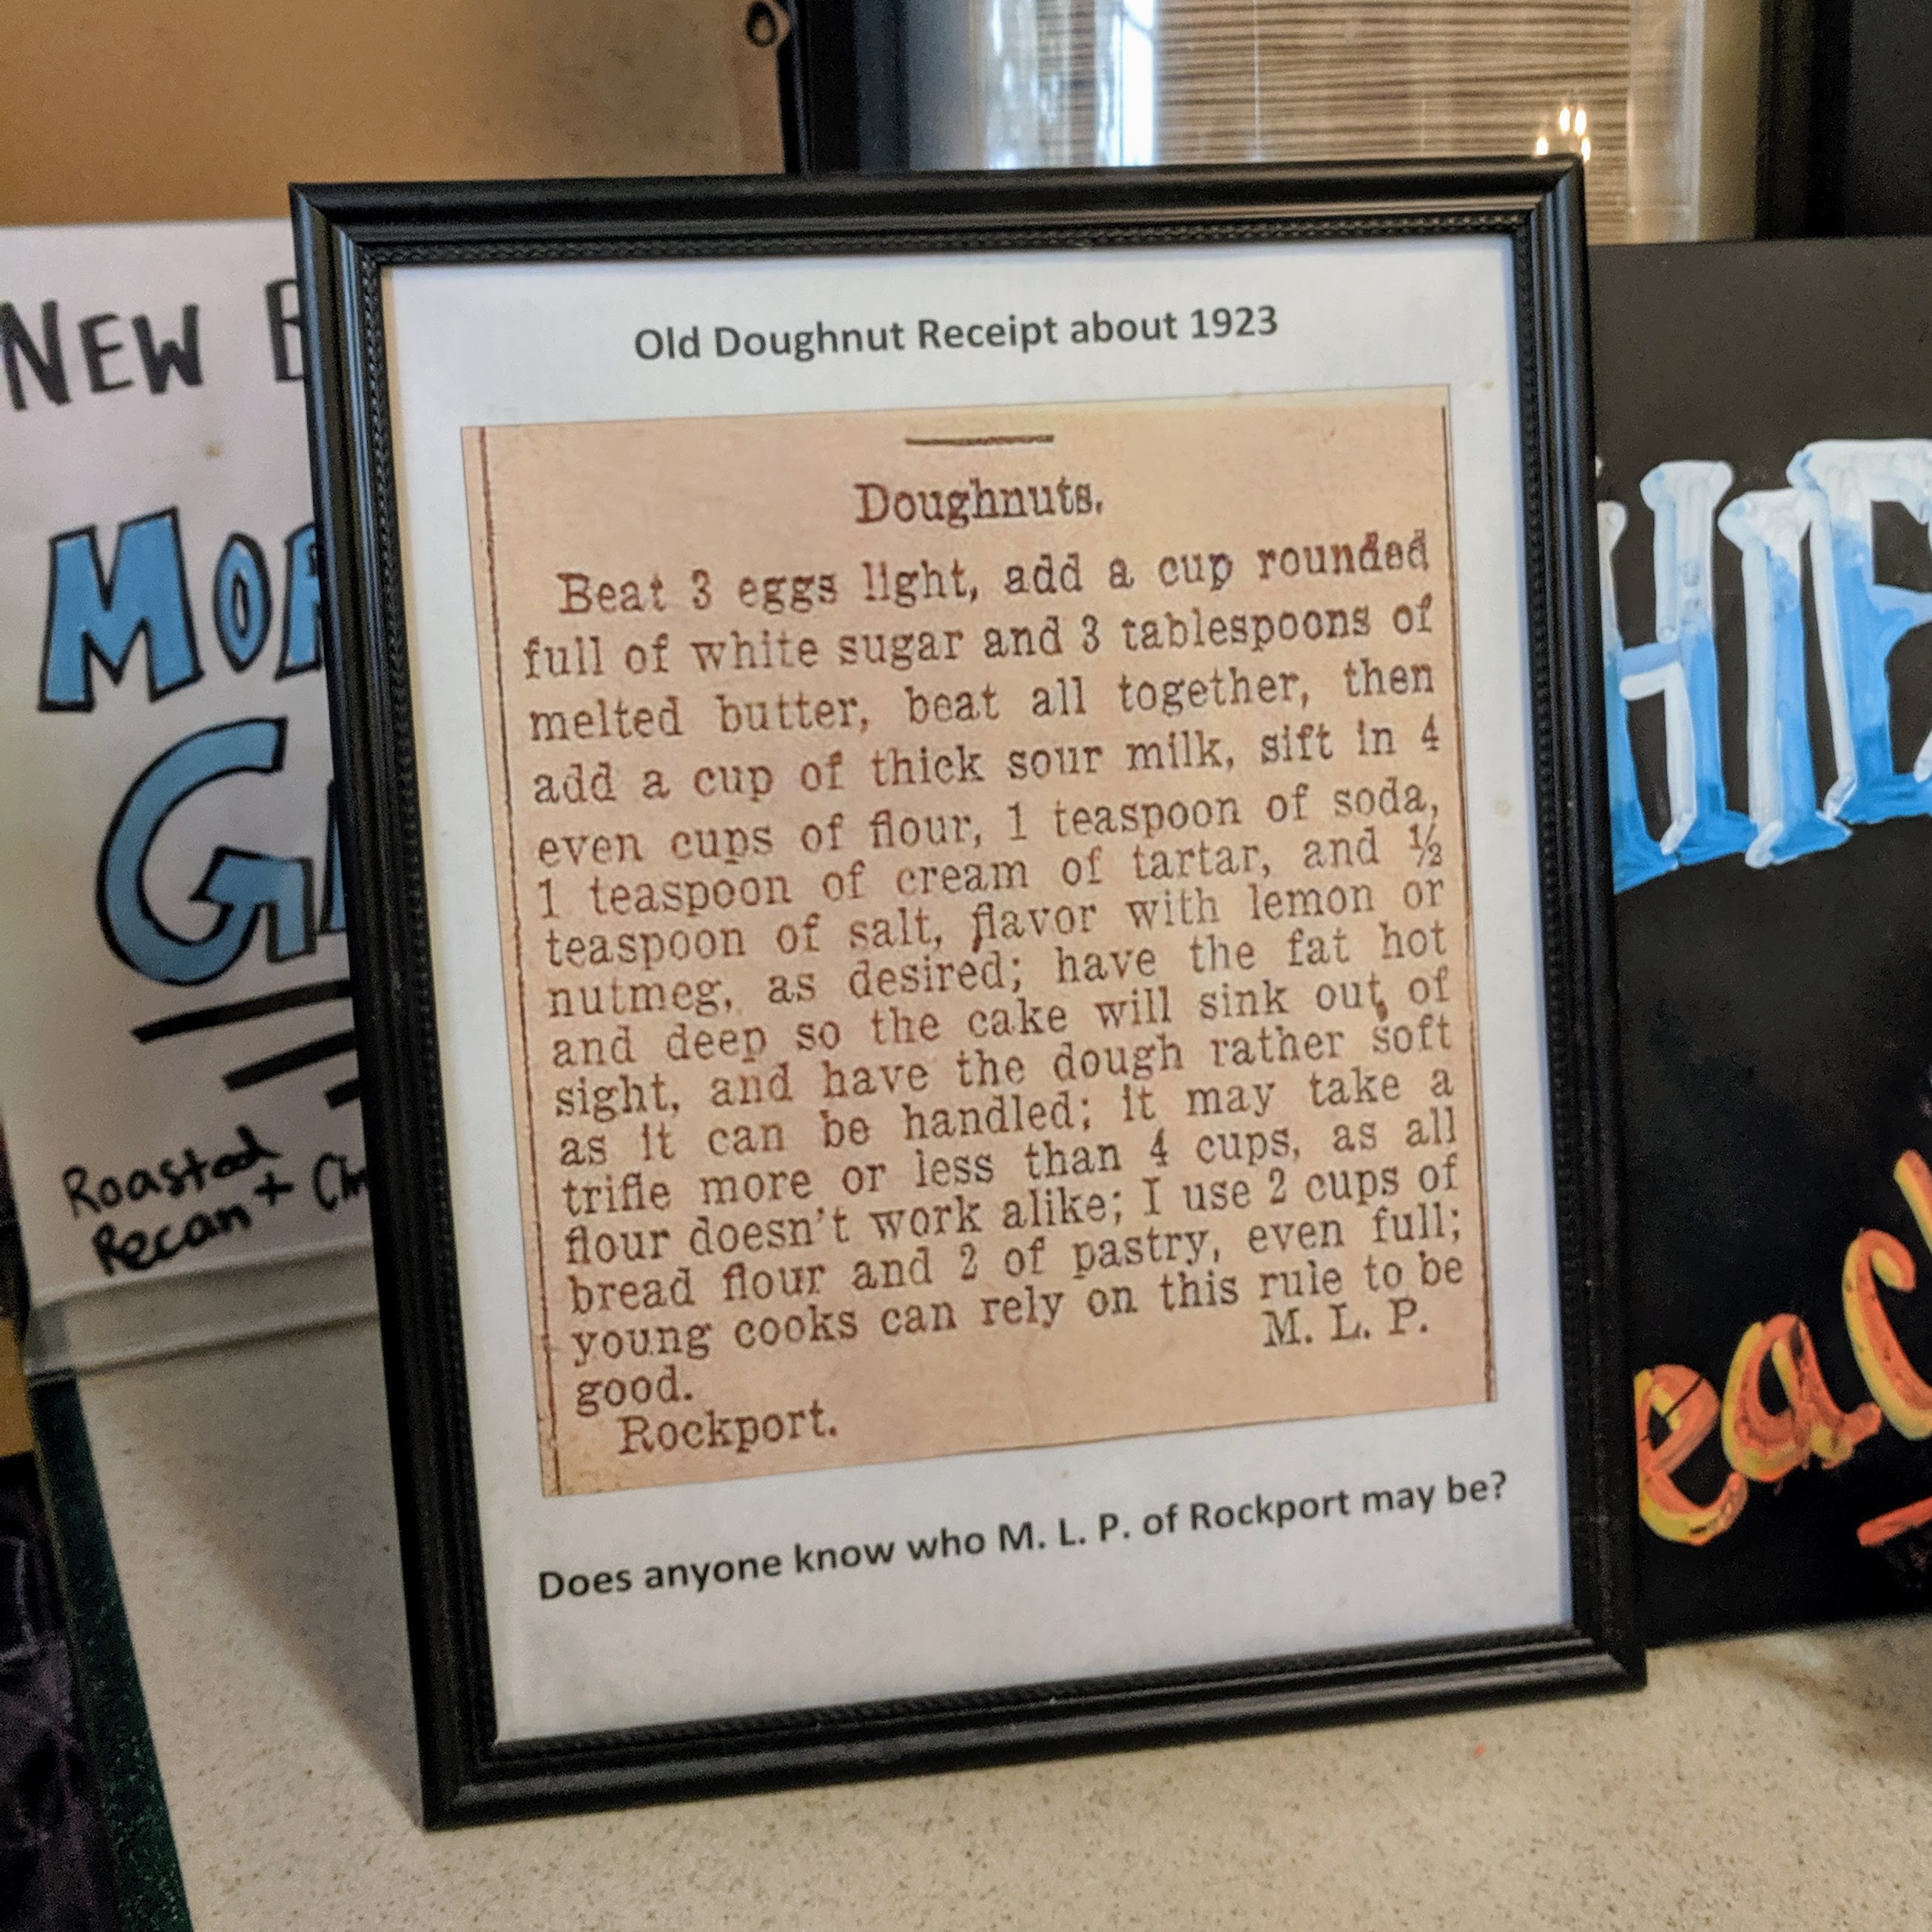 Old Doughnut Receipt about 1923
Doughnuts.
Beat 3 eggs light, add a cup rounded
full of white sugar and 3 tablespoons of
melted butter, beat all together, then
add a cup of thick sour milk, sift in 4
even cups of flour, 1 teaspoon of soda,
1 teaspoon of cream of tartar, and ½
teaspoon of salt, flavor with lemon or
nutmeg, as desired; have the fat hot
and deep so the cake will sink out of
sight, and have the dough rather soft
as it can be handled; it may take a
trifle more or less than 4 cups, as all
flour doesn't work alike; I use 2 cups of
bread flour and 2 of pastry, even full;
young cooks can rely on this rule to be
good. M. L. P.
Rockport.
Does anyone know who M. L. P. of Rockport may be?
NEW
Roasted
Pecan +